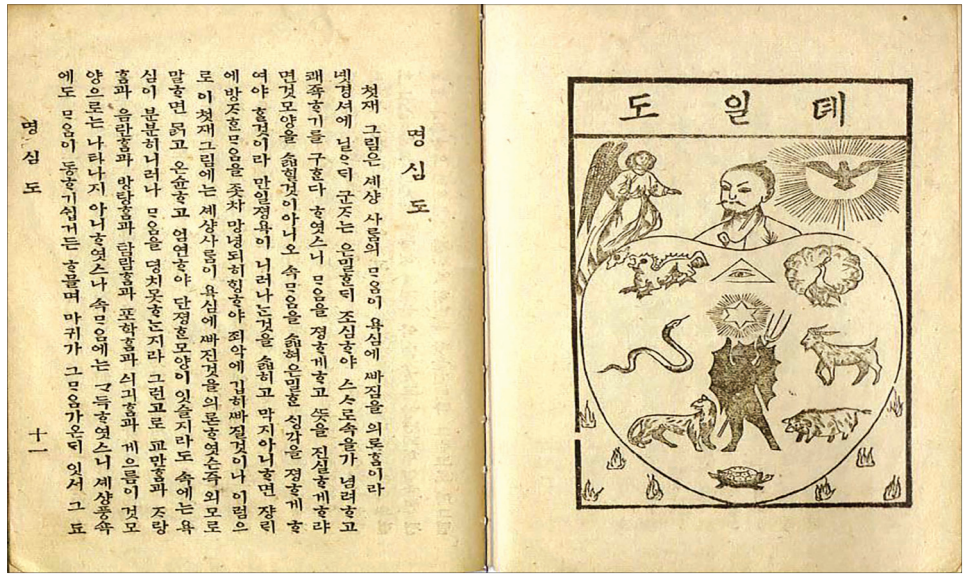 뎨일도
명심도
첫재 그림은 셰샹 사ᄅᆞᆷ의 ᄆᆞᄋᆞᆷ이 욕심에 ᄲᅡ짐을 의론ᄒᆞᆷ이라
녯경셔에 닐ᄋᆞᄃᆡ 군ᄌᆞ는 은밀ᄒᆞᆫᄃᆡ 조심ᄒᆞ야 스스로속을가 념려ᄒᆞ고
쾌족ᄒᆞ기를 구ᄒᆞᆫ다 ᄒᆞ엿스니 ᄆᆞᄋᆞᆷ을 졍ᄒᆞ게ᄒᆞ고 ᄯᅳᆺ을 진실ᄒᆞ게ᄒᆞ랴
면것모양을 ᄉᆞᆲ힐것이아니오 속ᄆᆞᄋᆞᆷ을 ᄉᆞᆲ혀은밀ᄒᆞᆫ ᄉᆡᆼ각을 졍ᄒᆞ게 ᄒᆞ
여야 ᄒᆞᆯ것이라 만일졍욕이 니러나는것을 ᄉᆞᆲ히고 막지아니ᄒᆞ면 쟝ᄅᆡ
에 방ᄌᆞᄒᆞᆫᄆᆞᄋᆞᆷ을 좃차 망녕되히ᄒᆡᆼᄒᆞ야 죄악에 깁히ᄲᅡ질것이나 이럼으
로 이 첫재그림에는 셰샹사ᄅᆞᆷ이 욕심에 ᄲᅡ진것을의론ᄒᆞ엿슨즉 외모로
말ᄒᆞ면 ᄆᆞᆰ고 온슌ᄒᆞ고 엄연ᄒᆞ야 단졍ᄒᆞᆫ모양이 잇슬지라도 속에는 욕
심이 분분히니러나 ᄆᆞᄋᆞᆷ을 뎡치못ᄒᆞ는지라 그런고로 교만ᄒᆞᆷ과 ᄌᆞ랑
ᄒᆞᆷ과 음란ᄒᆞᆷ과 방탕ᄒᆞᆷ과 탐람ᄒᆞᆷ과 포학ᄒᆞᆷ과 싀긔ᄒᆞᆷ과 게으름이 것모
양으로는 나타나지 아니ᄒᆞ엿스나 속ᄆᆞᄋᆞᆷ에는 ᄀᆞ득ᄒᆞ엿스니 셰샹풍쇽
에도 ᄆᆞᄋᆞᆷ이 동ᄒᆞ기쉽거든 ᄒᆞ믈며 마귀가 그ᄆᆞᄋᆞᆷ가온ᄃᆡ 잇서 그 됴
명심도
十一